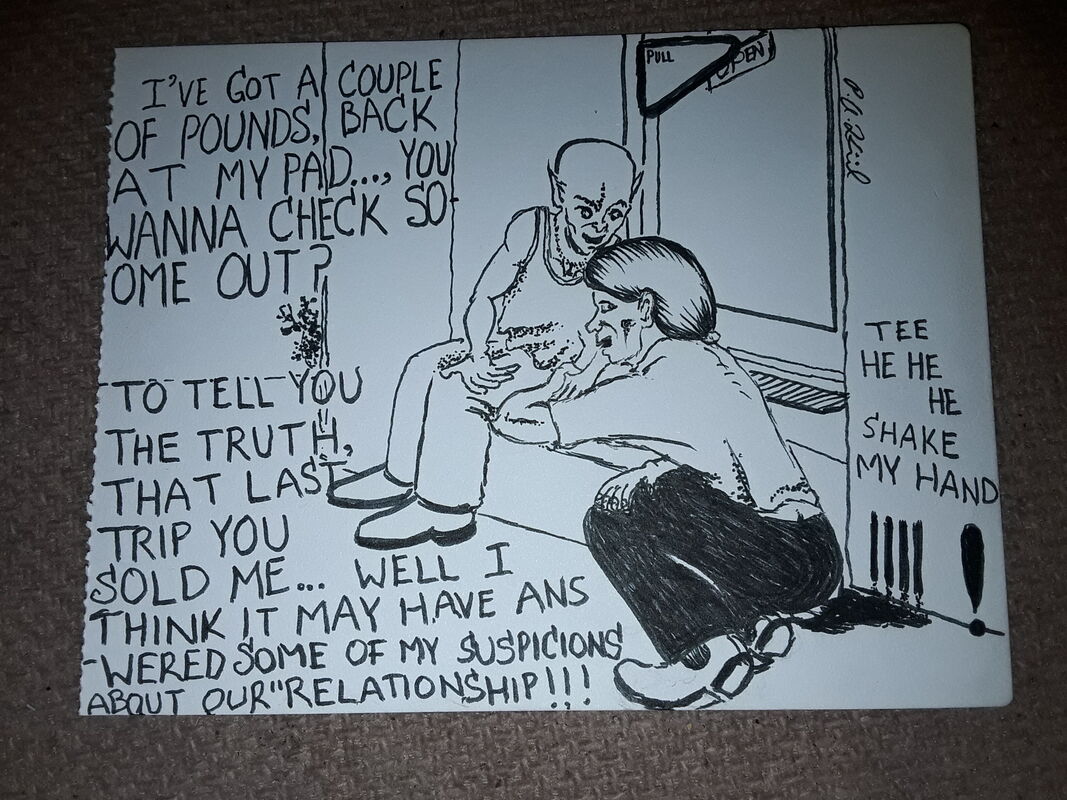 I'VE GOT A COUPLE
OF POUNDS, BACK
AT MY PAD..., YOU
WANNA CHECK SO-
OME OUT?
TO TELL YOU
THE TRUTH,
THAT LAST
TRIP YOU
SOLD ME... WELL I
THINK IT MAY HAVE ANS
-WERED SOME OF MY SUSPICIONS
ABOUT OUR "RELATIONSHIP!!!
PULL
OPEN
TEE
HE HE
HE
SHAKE
MY HAND
!!!! !